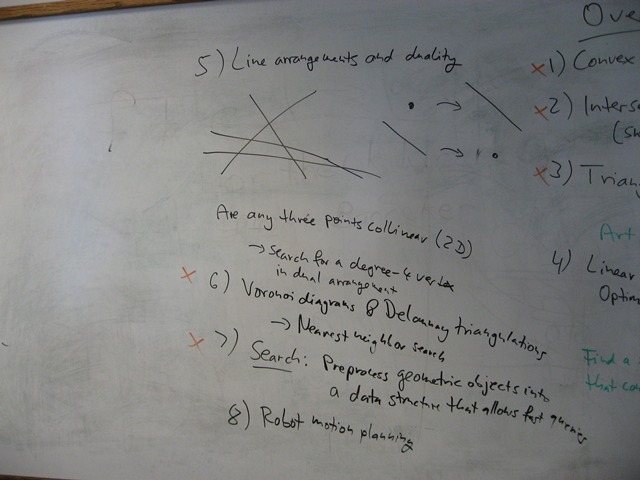 5) Line arrangements and duality
Are any three points collinear (2D)
→ Search for a degree-4 vertex
in dual arrangement
x 6) Voronoi diagrams & Delaunay triangulations
→ Nearest neighbor search
x 7) Search: Preprocess geometric objects into
a data structure that allows fast queries
8) Robot motion planning
Ove
x 1) Convex
x 2) Interse
x 3) Triang
Art
4) Linear
Optim
Find a
that con